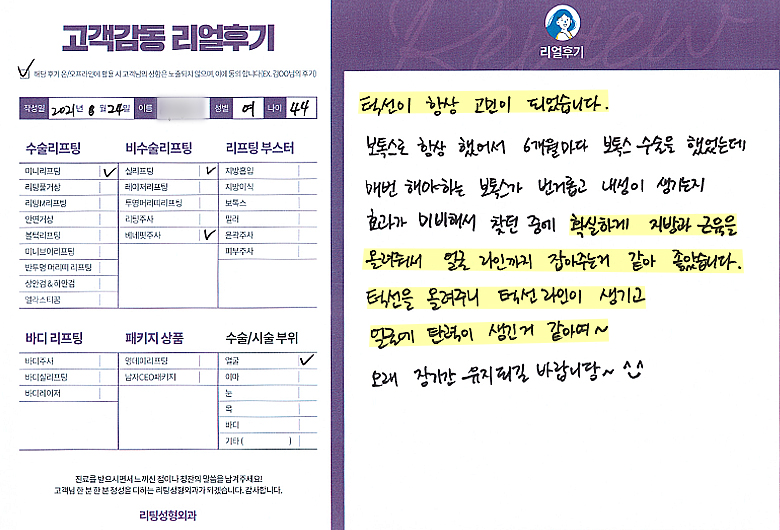 고객감동 리얼후기
해당 후기 온/오프라인에 활용 시 고객님의 성함은 노출되지 않으며, 이에 동의 합니다(EX. 김OO님의 후기)
작성일 2021년 8월 24일 이름 성별 여 나이 44
수술리프팅 비수술리프팅 리프팅 부스터
미니리프팅 실리프팅 지방흡입
리팅풀거상 레이저리프팅 지방이식
리팅M리프팅 투명머리띠리프팅 보톡스
안면거상 리팅주사 필러
볼턱리프팅 베네핏주사 윤곽주사
미니브이리프팅 피부주사
반투명 머리띠 리프팅
상안검 & 하안검
엘라스티꿈
바디 리프팅 패키지 상품 수술/시술 부위
바디주사 원데이리프팅 얼굴
바디실리프팅 남자CEO패키지 이마
바디레이저 눈
목
바디
기타 ( )
진료를 받으시면서 느끼신 점이나 칭찬의 말씀을 남겨주세요!
고객님 한 분 한 분 정성을 다하는 리팅성형외과가 되겠습니다. 감사합니다.
리팅성형외과
Review
리얼후기
턱선이 항상 고민이 되었습니다.
보톡스로 항상 했어서 6개월마다 보톡스 수술을 했었는데
매번 해야하는 보톡스가 번거롭고 내성이 생기는지
효과가 미비해서 찾던 중에 확실하게 지방과 근육을
올려줘서 얼굴 라인까지 잡아주는거 같아 좋았습니다.
턱선을 올려주니 턱선 라인이 생기고
얼굴에 탄력이 생긴거 같아여~
오래 장기간 유지되길 바랍니당~ ^^